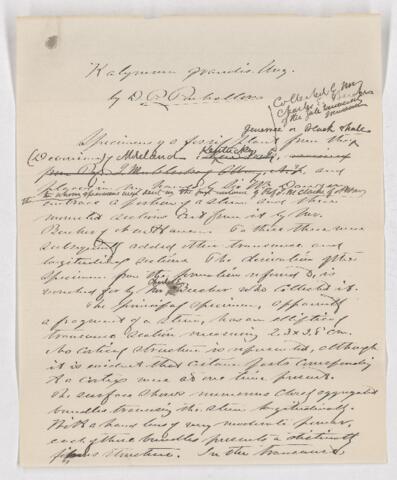 Kalymma grandis. Ung.
by D. P. Penhallow
Collected by Mr
Charles E. Beecher
of the Yale University
Museum
Genesee or black shale
Specimens of a fossil plant from the
(Devonian) Moreland Kentucky
placed in my hands by Sir Wm Dawson
to whom specimens were sent in the first instance by Prof. J. M. Clarke of Albany
embrace a portion of a stem and three
mounted sections cut from it by Mr.
Beecher of New Haven. To these there were
subsequently added other transverse and
longitudinal sections. The derivation of the
specimen from the formation referred to, is
vouched for by Mr Charles Beecher who collected it.
The principal specimen, apparently
a fragment of a stem, has an elliptical
transverse section measuring 2.3 x 3.8 cm.
No cortical structure is represented, although
it is evident that certain parts corresponding
to a cortex were at one time present.
The surface shows numerous closely aggregated
bundles traversing the stem longitudinally.
With a hand lens of very moderate power,
each of these bundles presents a distinctly
fibrous structure. In the transverse